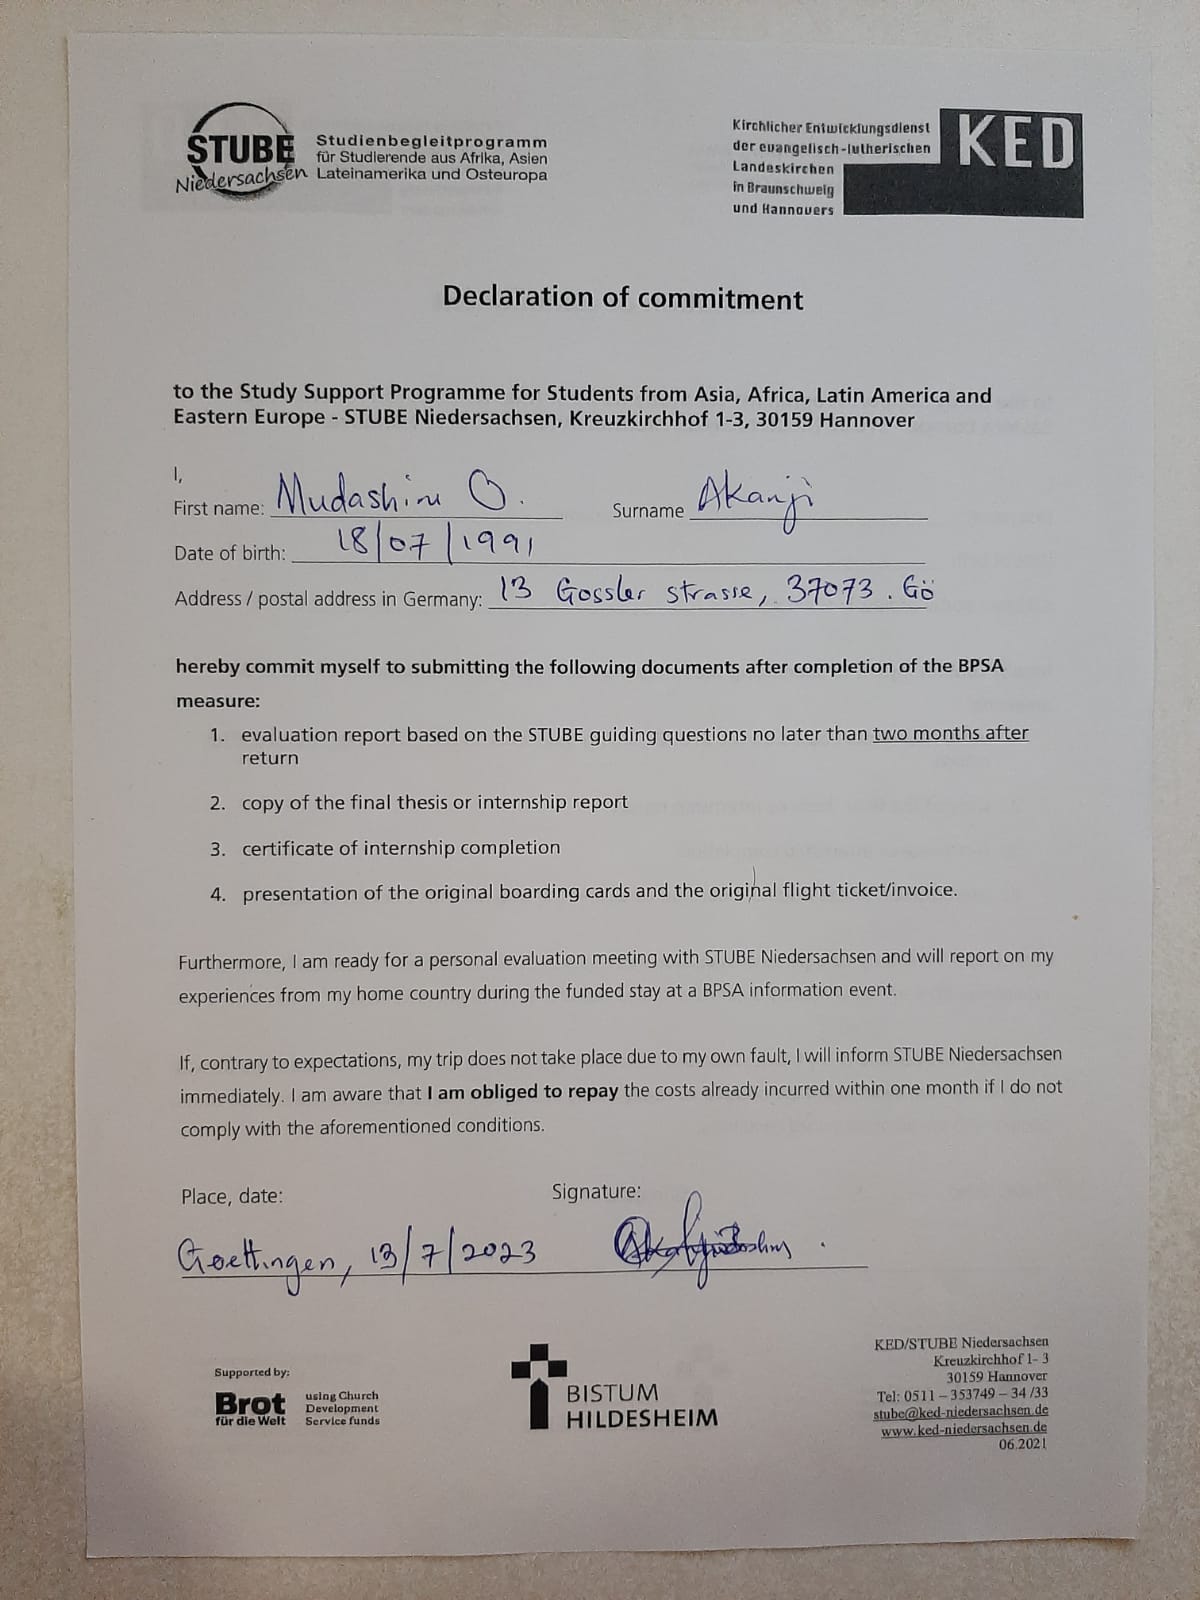 STUBE
Niedersachsen
Studienbegleitprogramm
für Studierende aus Afrika, Asien
Lateinamerika und Osteuropa
Kirchlicher Entwicklungsdienst
der evangelisch-lutherischen
Landeskirchen
in Braunschweig
und Hannovers
KED
Declaration of commitment
to the Study Support Programme for Students from Asia, Africa, Latin America and
Eastern Europe - STUBE Niedersachsen, Kreuzkirchhof 1-3, 30159 Hannover
I,
First name: Mudashiru O. Surname Akanji
Date of birth: 18/07/1991
Address / postal address in Germany: 13 Gossler strasse, 37073. Gö
hereby commit myself to submitting the following documents after completion of the BPSA
measure:
1. evaluation report based on the STUBE guiding questions no later than two months after
return
2. copy of the final thesis or internship report
3. certificate of internship completion
4. presentation of the original boarding cards and the original flight ticket/invoice.
Furthermore, I am ready for a personal evaluation meeting with STUBE Niedersachsen and will report on my
experiences from my home country during the funded stay at a BPSA information event.
If, contrary to expectations, my trip does not take place due to my own fault, I will inform STUBE Niedersachsen
immediately. I am aware that I am obliged to repay the costs already incurred within one month if I do not
comply with the aforementioned conditions.
Place, date: Signature:
Goettingen, 13/7/2023
Supported by:
Brot
für die Welt
using Church
Development
Service funds
BISTUM
HILDESHEIM
KED/STUBE Niedersachsen
Kreuzkirchhof 1- 3
30159 Hannover
Tel: 0511 – 353749 – 34 /33
stube@ked-niedersachsen.de
www.ked-niedersachsen.de
06.2021